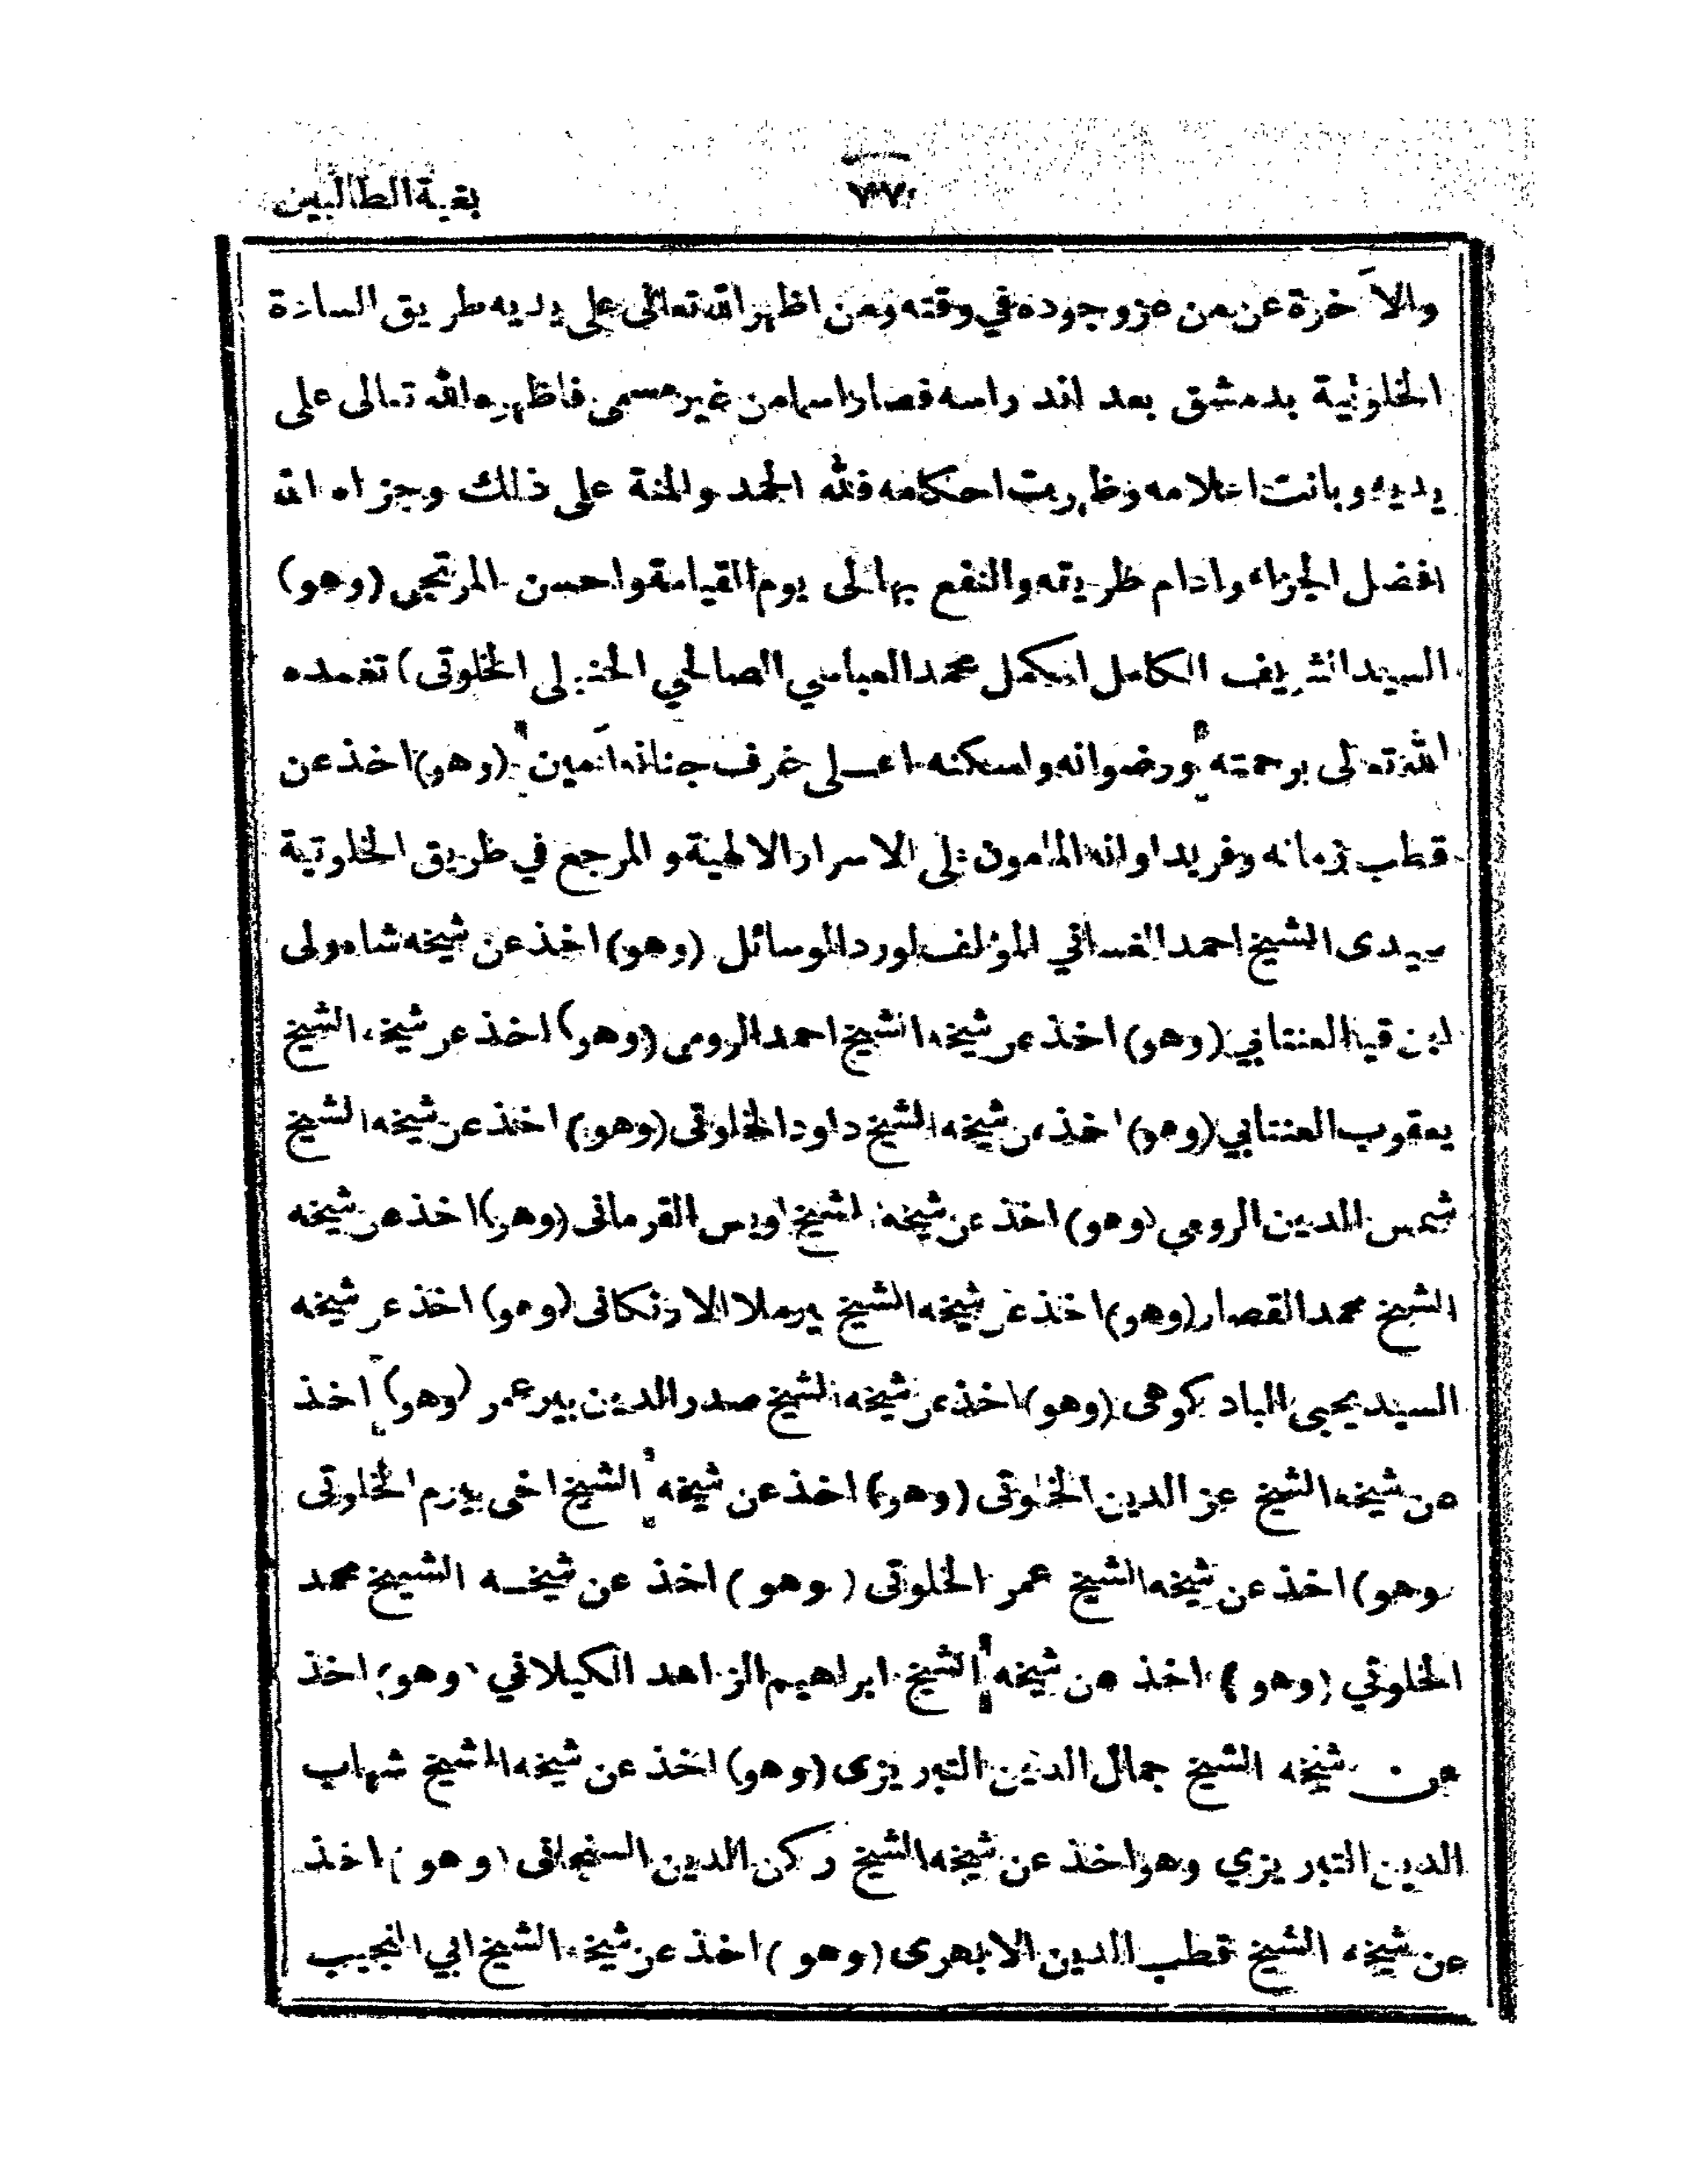 بغية الطالبين
٣٧
والآخرة عن من عز وجوده في وقته ومن اظهر الله تعالى على يديه طريق السادة
الخلوتية بدمشق بعد اندراسه فصار اسما من غير مسمى فاظهره الله تعالى على
يديه وبانت اعلامه وظهرت احكامه فلله الحمد والمنة على ذلك وجزاه الله
افضل الجزاء وادام طريقته والنفع بها الى يوم القيامة واحسن المرتجى (وهو)
السيد الشريف الكامل المكمل محمد العباسي الصالحي الحنبلى الخلوتى) تغمده
الله تعالى برحمته ورضوانه واسكنه اعلى غرف جنانه آمين (وهو) اخذ عن
قطب زمانه وفريد اوانه المامون على الاسرار الالهية والمرجع في طريق الخلوتية
سيدى الشيخ احمد الغسالي المؤلف لورد الوسائل (وهو) اخذ عن شيخه شاه ولى
ابن العنتابي (وهو) اخذ عن شيخه الشيخ احمد الرومى (وهو) اخذ عن شيخه الشيخ
يعقوب العنتابي (وهو) اخذ عن شيخه الشيخ داود الخلوتى (وهو) اخذ عن شيخه الشيخ
شمس الدين الرومي (وهو) اخذ عن شيخه الشيخ اويس القرمانى (وهو) اخذ عن شيخه
الشيخ محمد القصار (وهو) اخذ عن شيخه الشيخ بيرملا الارنكانى (وهو) اخذ عن شيخه
السيد يحيى الباد كوهى (وهو) اخذ عن شيخه الشيخ صدر الدين بير عمر (وهو) اخذ
عن شيخه الشيخ عز الدين الخلوتى (وهو) اخذ عن شيخه الشيخ اخى بيرم الخلوتى
وهو) اخذ عن شيخه الشيخ عمر الخلوتى (وهو) اخذ عن شيخه الشيخ محمد
الخلوتي (وهو) اخذ عن شيخه الشيخ ابراهيم الزاهد الكيلاني (وهو) اخذ
عن شيخه الشيخ جمال الدين التبريزى (وهو) اخذ عن شيخه الشيخ شهاب
الدين التبريزي وهو اخذ عن شيخه الشيخ ركن الدين السنجاقى (وهو) اخذ
عن شيخه الشيخ قطب الدين الابهرى (وهو) اخذ عن شيخه الشيخ ابي النجيب